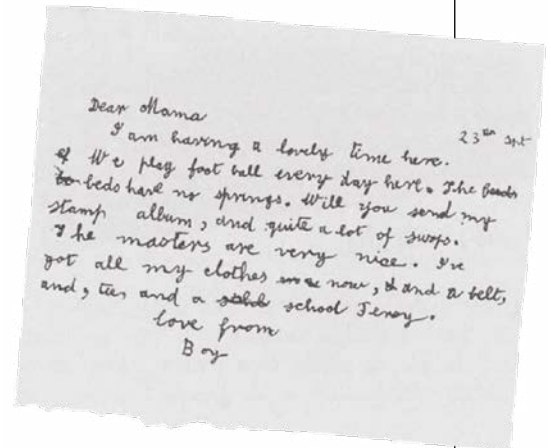 23th Spt
Dear Mama
I am having a lovely time here.
We play foot ball every day here. The
beds have no springs. Will you send my
stamp album, and quite a lot of swops.
The masters are very nice. I've
got all my clothes now, and a belt,
and, ties and a school Jersy.
love from
Boy